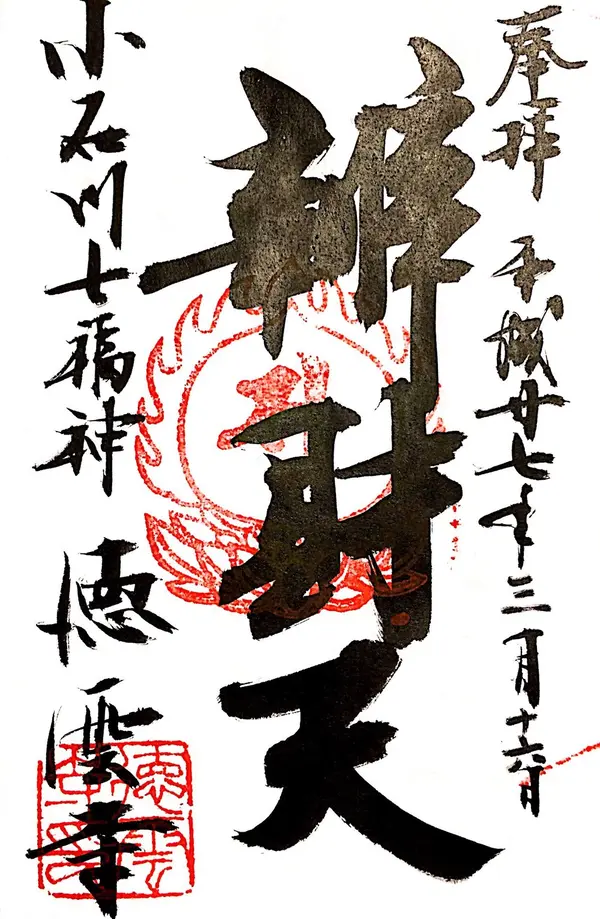 奉拝 平成廿七年三月十六日
辨財天
小石川七福神 徳雲寺